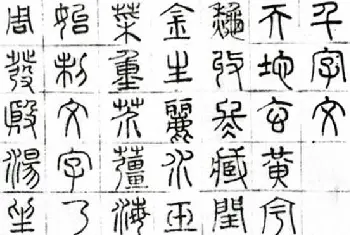 千字文
天地玄黃宇
秋收冬藏閏
金生麗水玉
菜重芥薑海
始制文字乃
周發殷湯坐